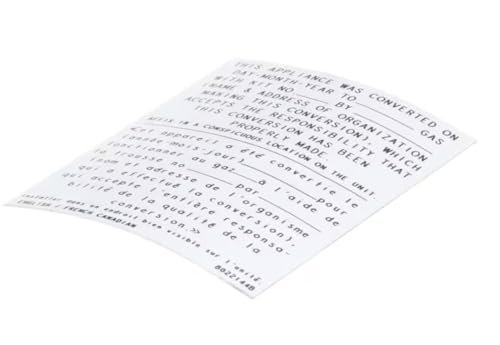 THIS APPLIANCE WAS CONVERTED ON
DAY-MONTH-YEAR TO GAS
WITH KIT NO. BY
(NAME & ADDRESS OF ORGANIZATION
MAKING THIS CONVERSION), WHICH
ACCEPTS THE RESPONSIBILITY THAT
THIS CONVERSION HAS BEEN
PROPERLY MADE.
IN A CONSPICUOUS LOCATION ON THE UNIT.
<Cet appareil a été convertie le
(code-mois-jour) pour
fonctionner au gaz à l'aide de
la trousse no par
(nom et adresse de l'organisme
qui a effectué la conversion),
qui accepte l'entière responsa-
bilité de la qualité de la
conversion.>>
Installer dans un endroit bien visible sur l'unité.
ENGLISH / FRENCH CANADIAN
8022144B